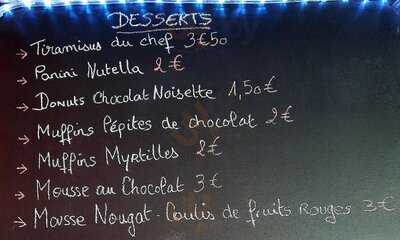 DESSERTS
→ Tiramisus du chef 3€50
→ Panini Nutella 2€
→ Donuts Chocolat Noisette 1,50€
→ Muffins Pépites de chocolat 2€
→ Muffins Myrtilles 2€
→ Mousse au Chocolat 3€
→ Mousse Nougat - Coulis de fruits Rouges 3€